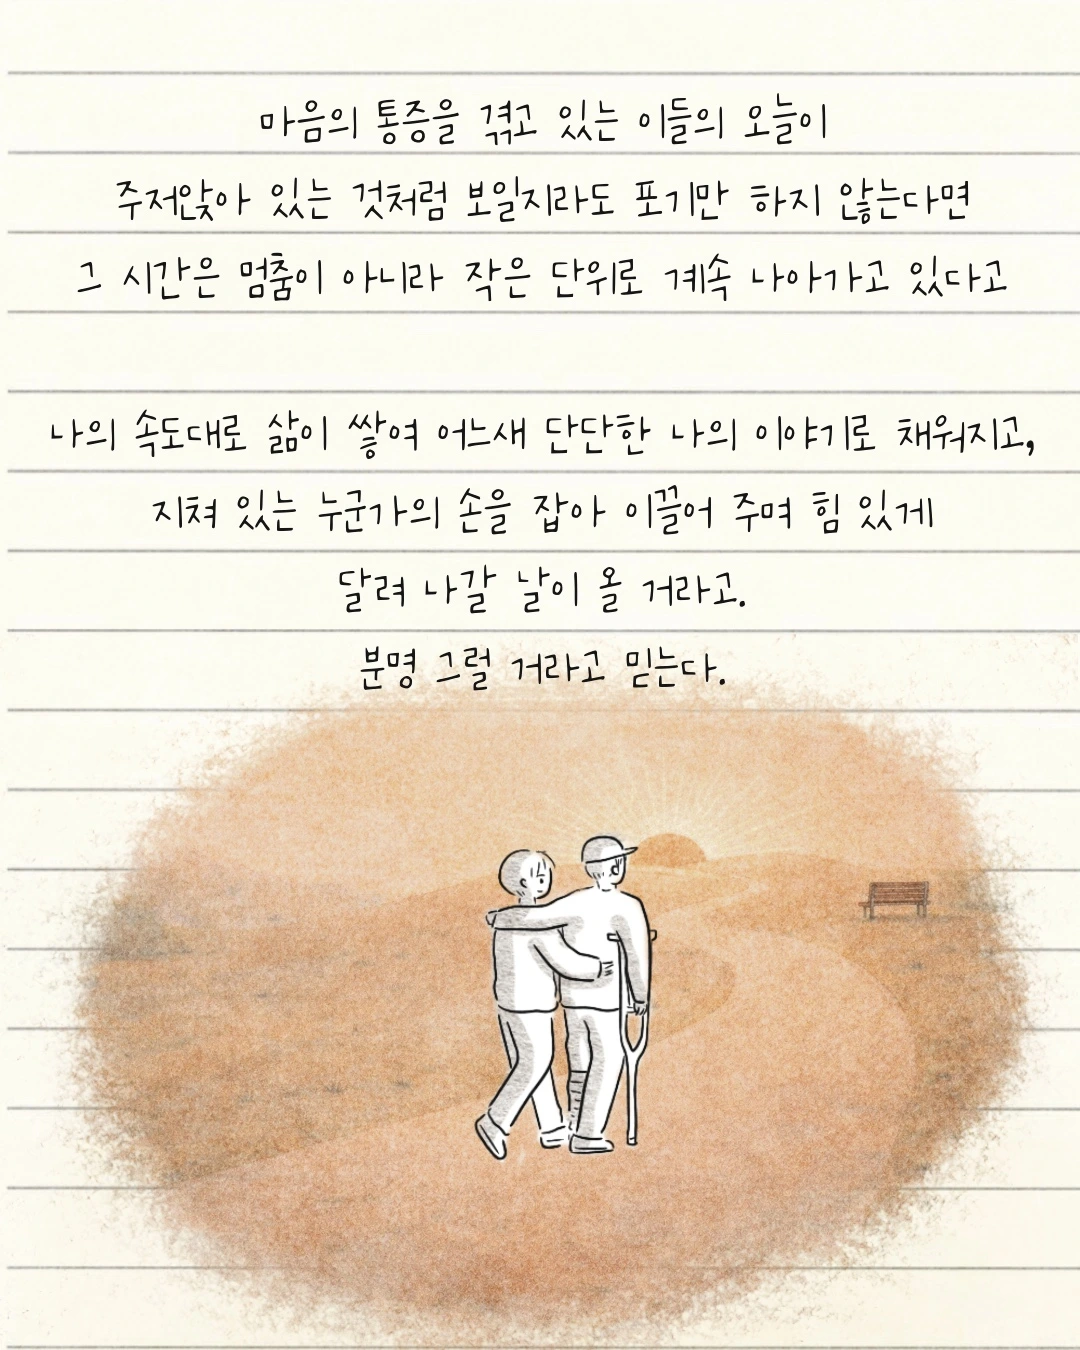 마음의 통증을 겪고 있는 이들의 오늘이
주저앉아 있는 것처럼 보일지라도 포기만 하지 않는다면
그 시간은 멈춤이 아니라 작은 단위로 계속 나아가고 있다고
나의 속도대로 삶이 쌓여 어느새 단단한 나의 이야기로 채워지고,
지쳐 있는 누군가의 손을 잡아 이끌어 주며 힘 있게
달려 나갈 날이 올 거라고.
분명 그럴 거라고 믿는다.